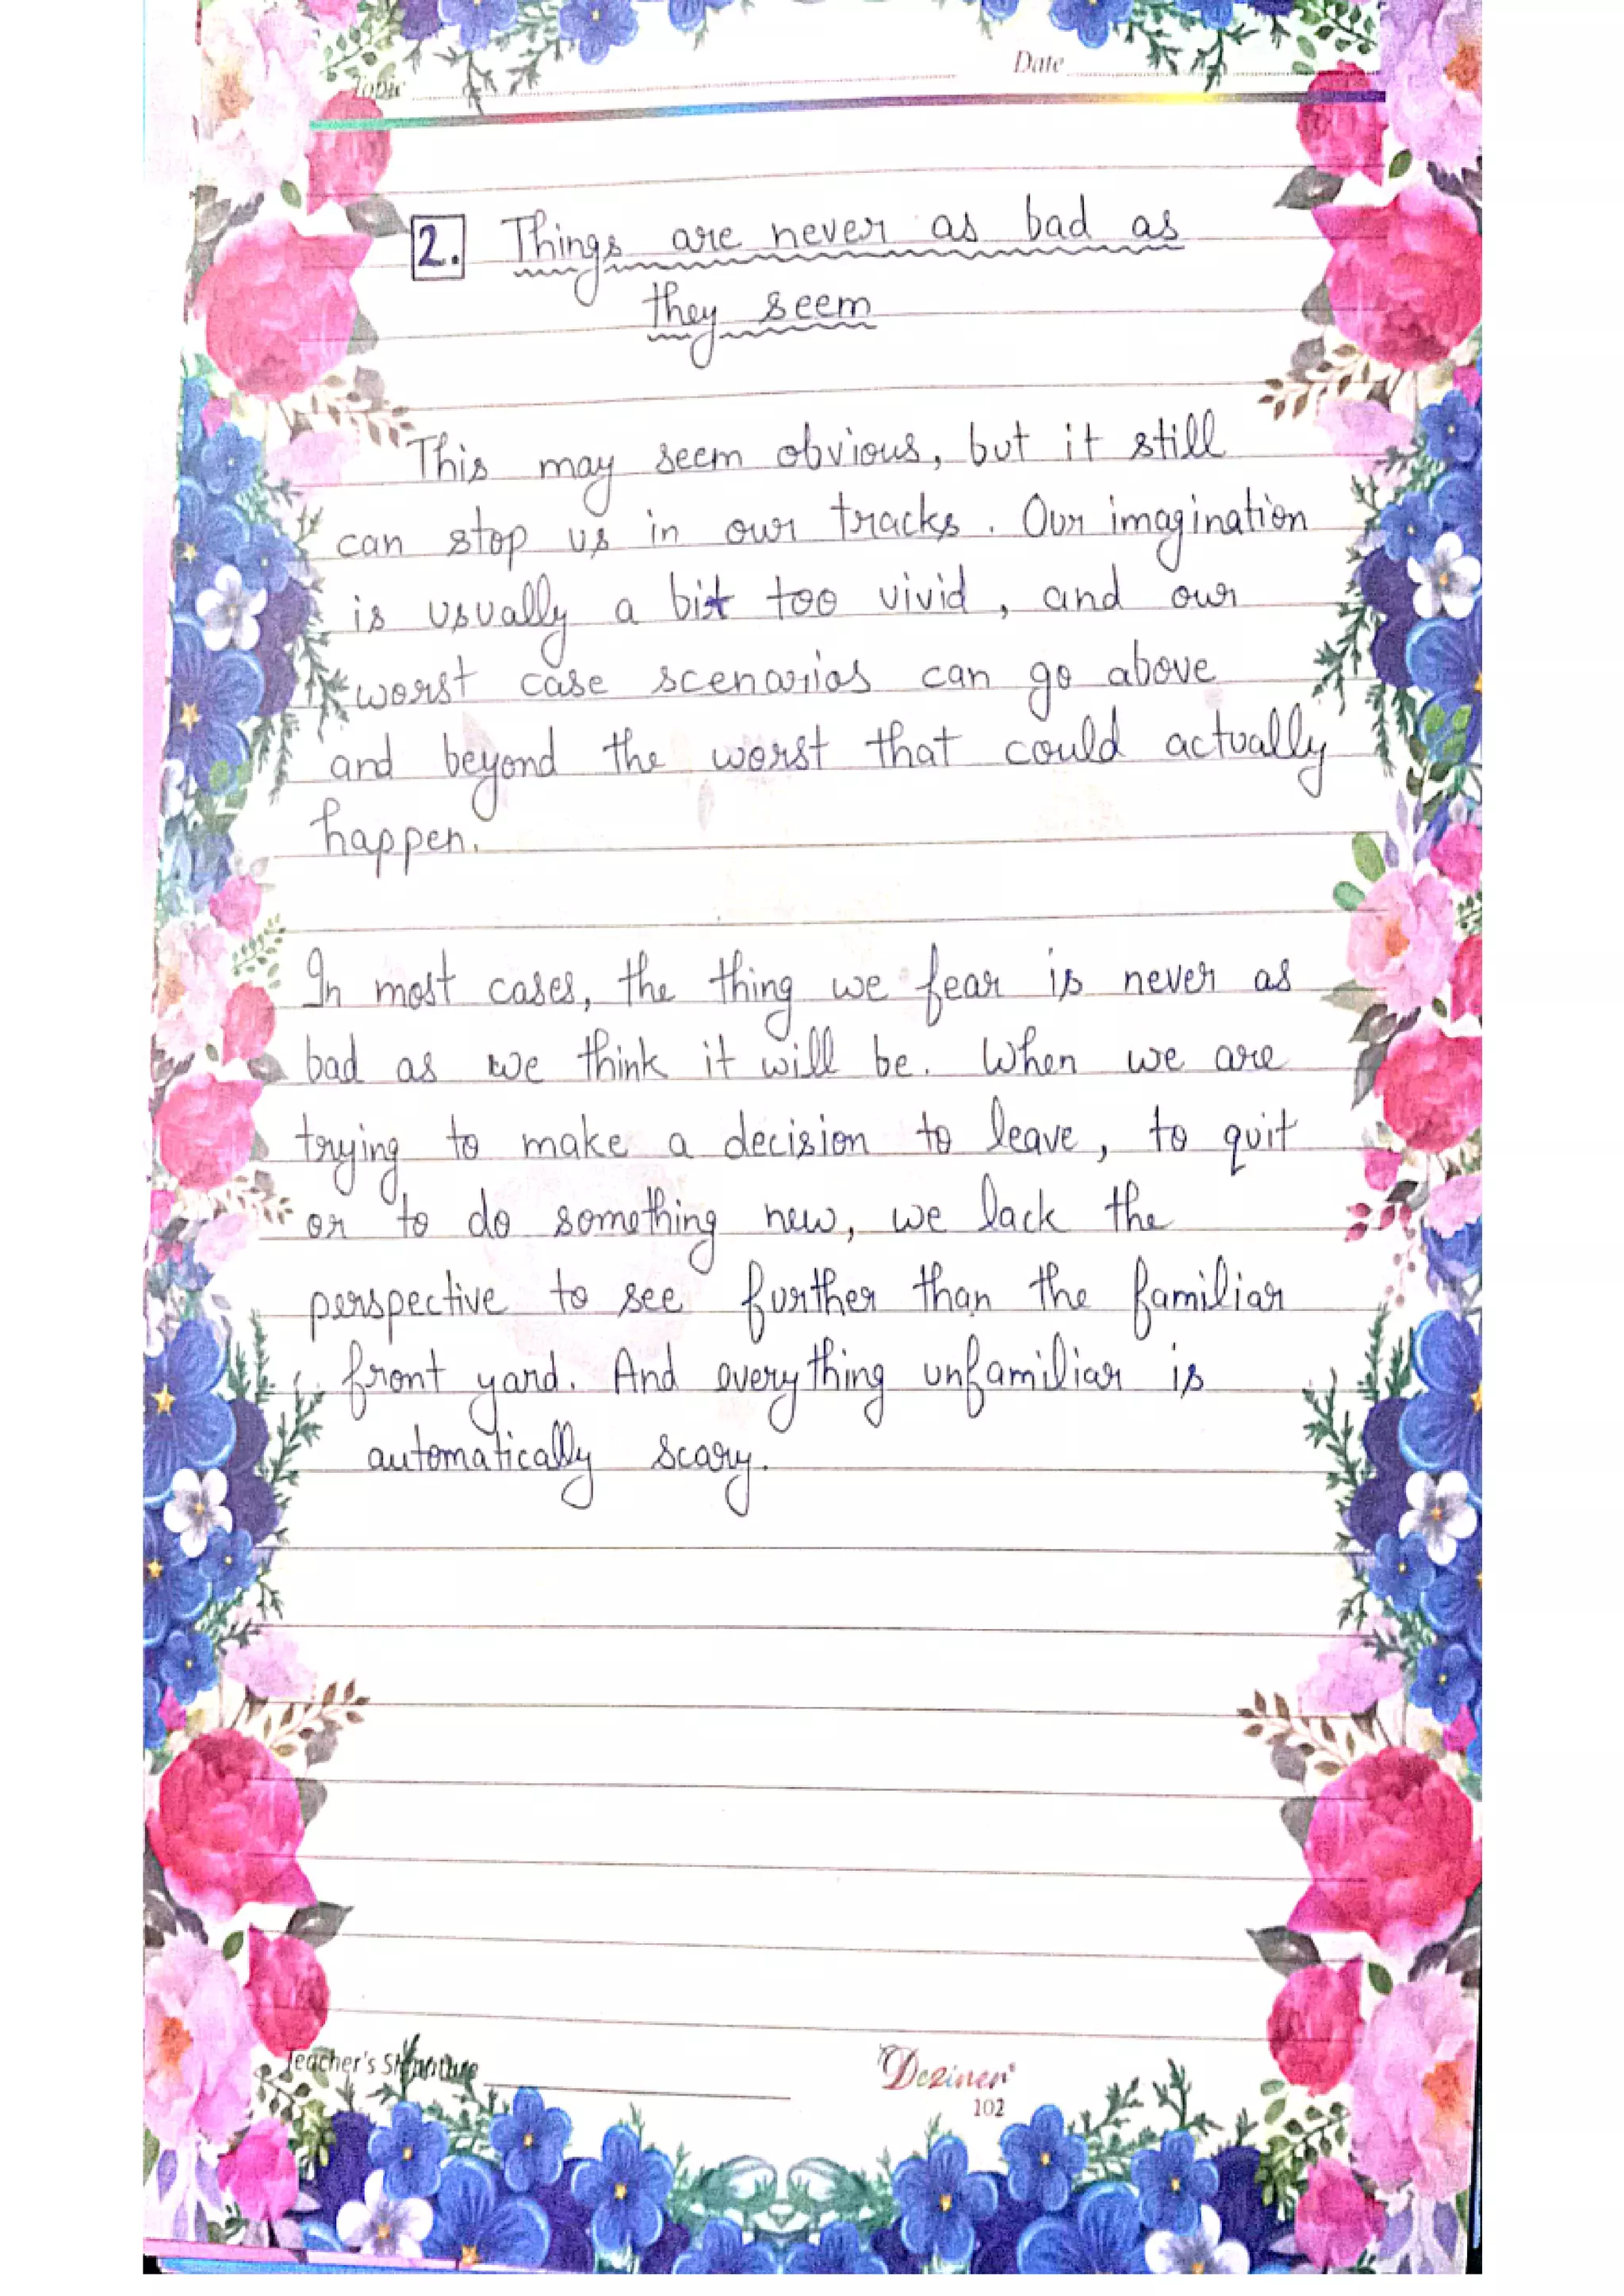 Topic
Date
2. Things are never as bad as
they seem
This may seem obvious, but it still
can stop us in our tracks. Our imagination
is usually a bit too vivid, and our
worst case scenarios can go above
and beyond the worst that could actually
happen.
In most cases, the thing we fear is never as
bad as we think it will be. When we are
trying to make a decision to leave, to quit
or to do something new, we lack the
perspective to see further than the familiar
front yard. And everything unfamiliar is
automatically scary.
Teacher's Signature
Deziner
102